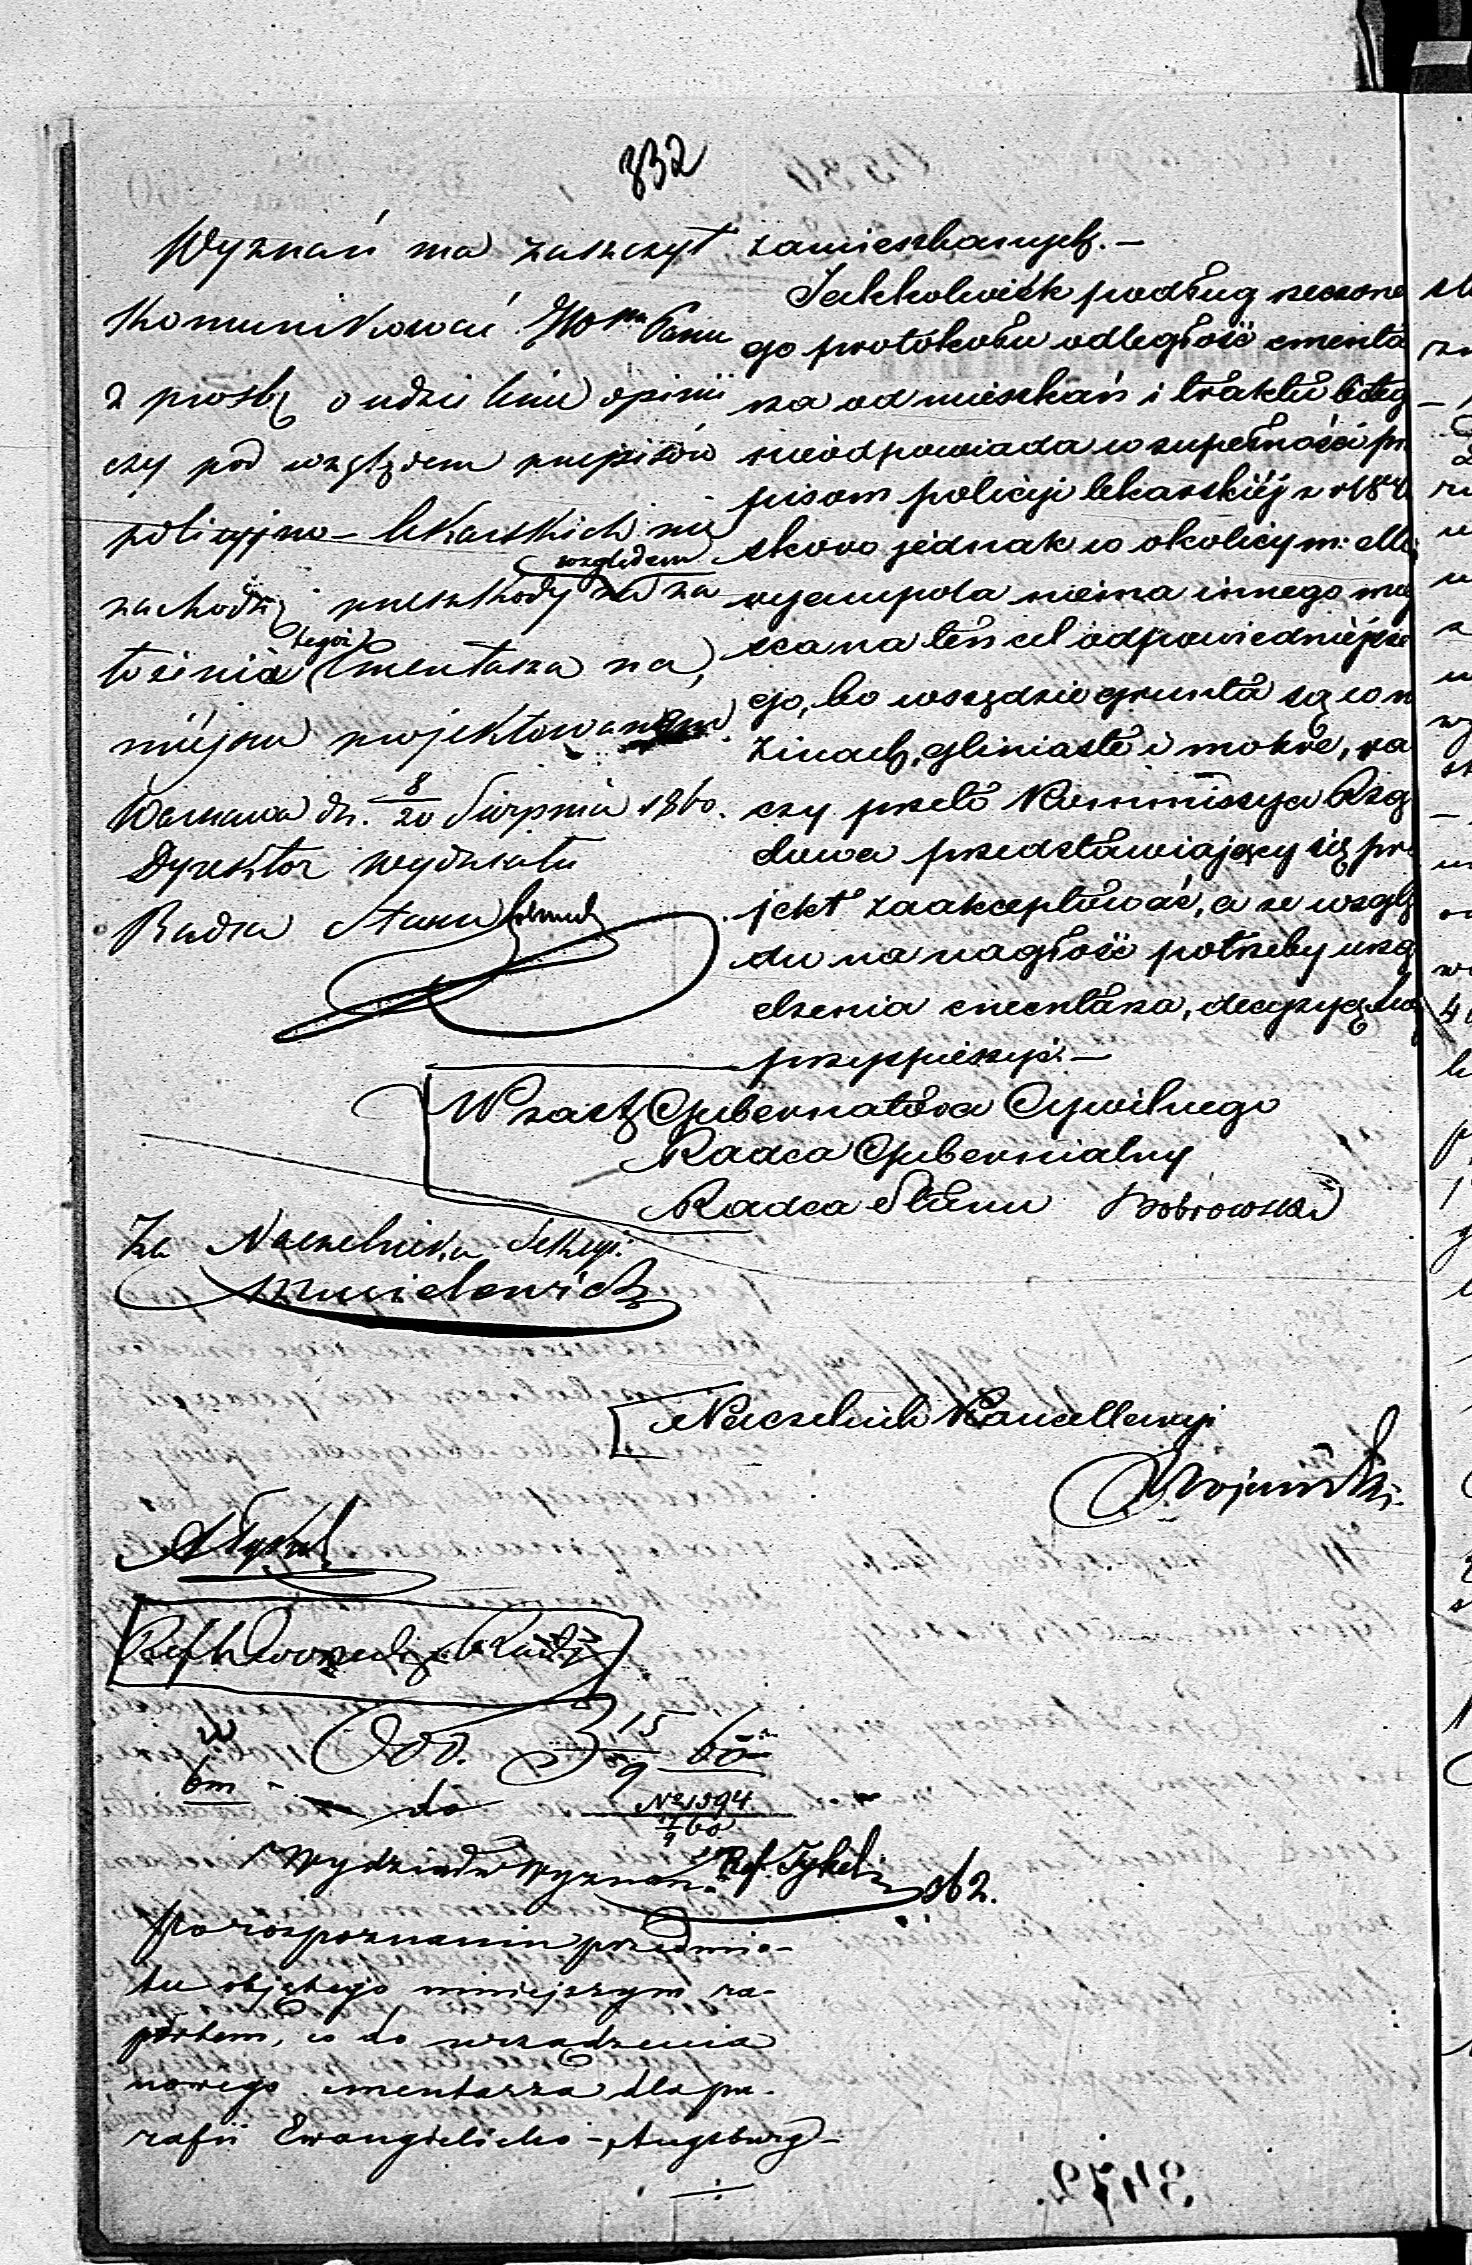 832
Wyznań ma zaszczyt
skomunikować JWmu Panu
z prośbą o udzielenie opinii
czy pod względem przepisów
policyjno-lekarskich nie
względem
zachodzą przeszkody za
tegoż
łożenia Cmentarza na
miejscu projektowanem
Warszawa dn. 8/20 Sierpnia 1860.
Dyrektor Wydziału
Radca Stanu
Za Naczelnika Sekcyi
zamieszkanych.—
Jakkolwiek podług rzeczone
go protokołu odległość cmenta
rza od mieszkań i traktu biteg
nieodpowiada w zupełności prze
pisom policyi lekarskiéj z r 184
skoro jednak w okolicy m: Ma
ryampola niema innego miej
sca na ten cel odpowiedniejsze
go, bo wszędzie grunta są w ni
zinach, gliniaste i mokre, ra
czy przeto Kommissya Rzą
dowa przedstawiający się pro
jekt zaakceptować, a ze wzglę
du na nagłość potrzeby urzą
dzenia cmentarza, decyzyą
przyspieszyć.—
W zast Gubernatora Cywilnego
Radca Gubernialny
Radca Stanu Dobrowolski
Naczelnik Kancellaryi
Odd. 3 15/9 60
do
No 1594
17/9 60
Wydziału Wyznań Ref. Tykel
ob 2.
Po rozpoznaniu przedmio-
tu objętego niniejszym ra-
portem, co do urządzenia
nowego cmentarza dla pa-
rafii Ewangelicko-Augsburg-
3472.